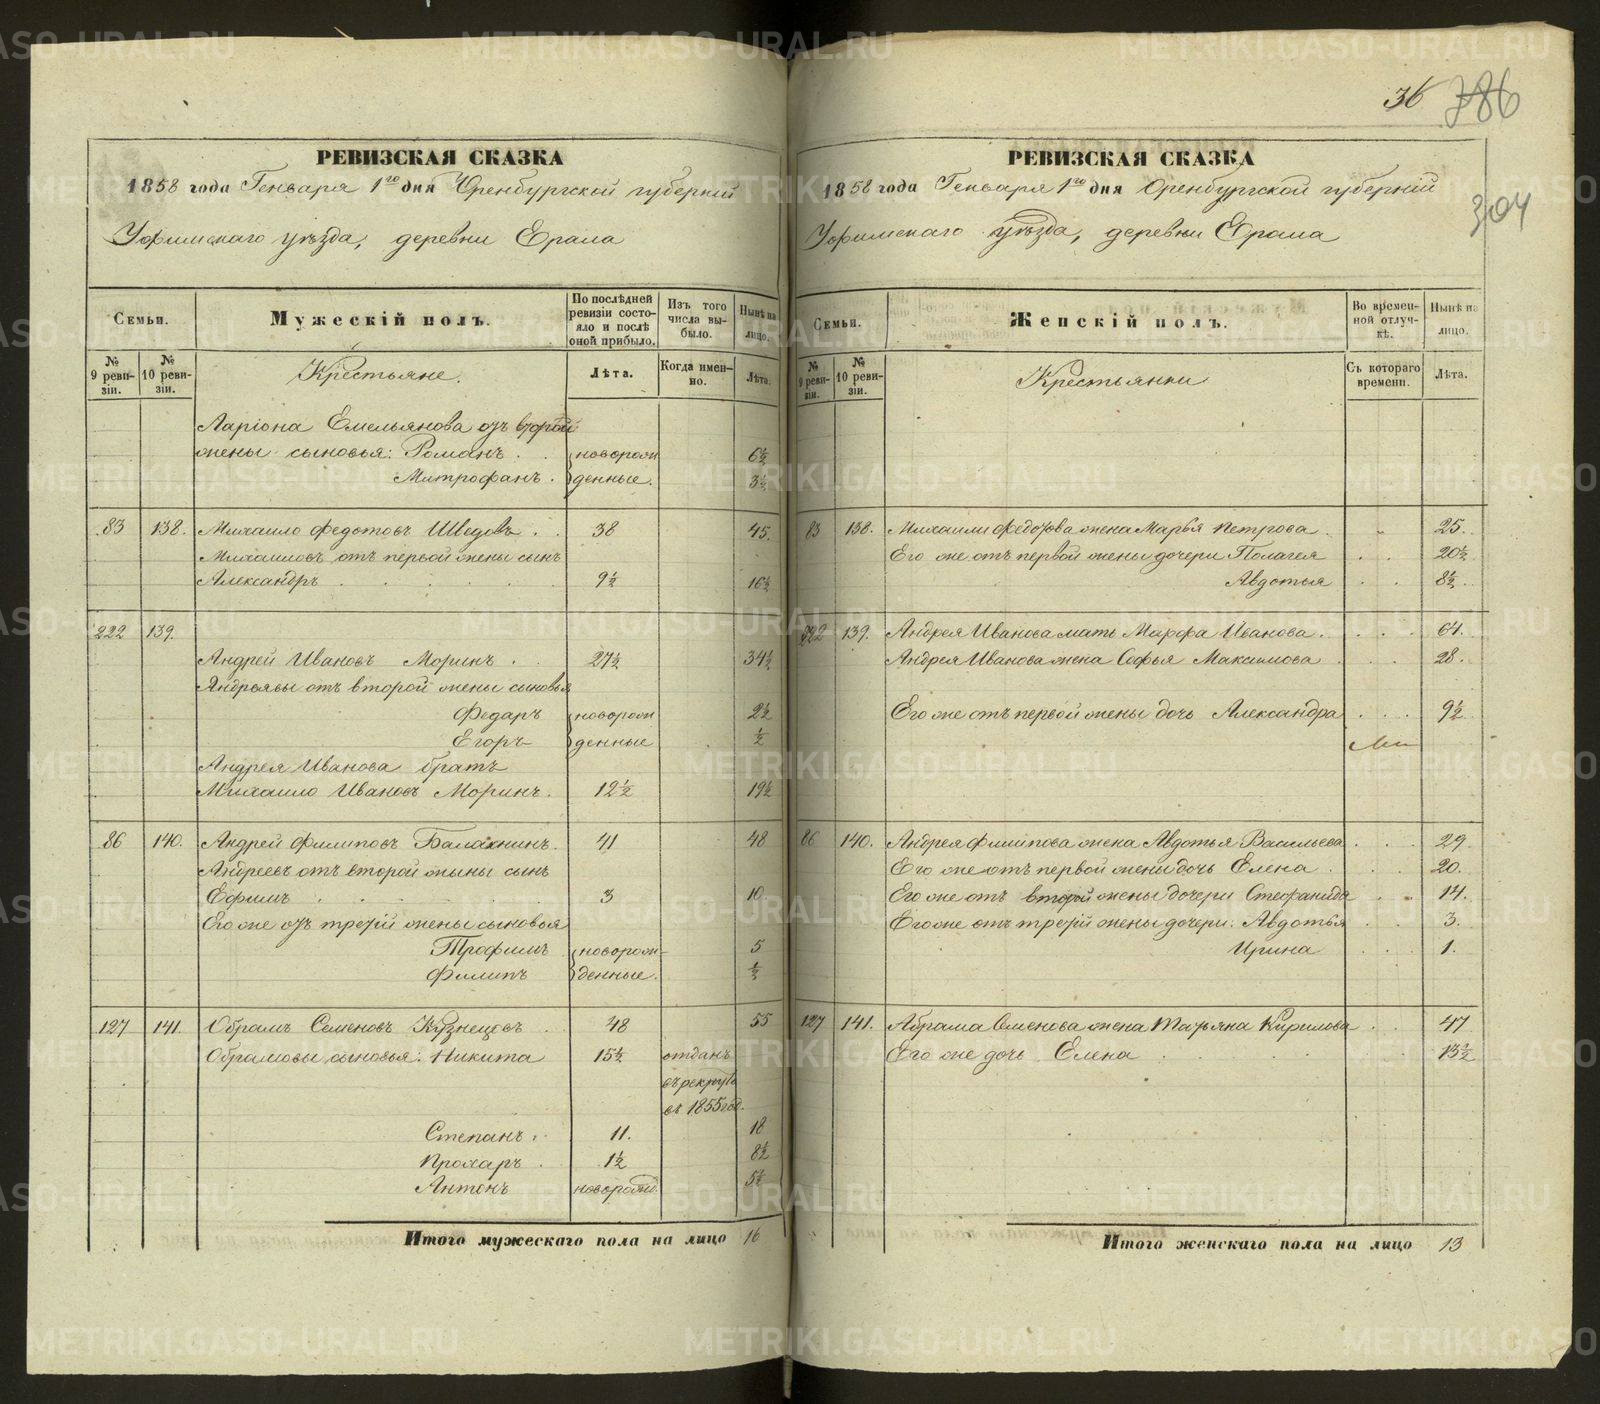 36 786
304
РЕВИЗСКАЯ СКАЗКА
1858 года Генваря 1го дня Оренбургской губернiй
Уфимскаго уѣзда, деревни Ерала
Семьи. Мужескiй полъ. По послѣдней ревизiи состояло и послѣ оной прибыло. Изъ того числа выбыло. Нынѣ на лицо.
№ 9 ревизiи. № 10 ревизiи. Крестьяне. Лѣта. Когда именно. Лѣта.
Ларiона Емельянова отъ второй
жены сыновья: Романъ . . новорож 6½
Митрофанъ . денные. 3½
83 138. Михаило Федотовъ Шведовъ . . 38 45.
Михаиловъ отъ первой жены сынъ
Александръ . . . . . 9½ 16½
222 139.
Андрей Ивановъ Моринъ . . 27½ 34½
Андреевы отъ второй жены сыновья
Федаръ новорож 2½
Егоръ денные ½
Андрея Иванова братъ
Михаило Ивановъ Моринъ. 12½ 19½
86 140. Андрей Филиповъ Балахнинъ. 41 48
Андреевъ отъ второй жыны сынъ
Ефимъ . . . . . 3 10.
Его же отъ третiй жены сыновья
Трофимъ новорож- 5
Филипъ денные. ½
127 141. Обрамъ Семеновъ Кузнецовъ . 48 55
Обрамовы сыновья: Никита 15½ отданъ
въ рекруты
въ 1855 год.
Степанъ. . 11. 18
Прохаръ . 1½ 8½
Антонъ новорожд. 5½
Итого мужескаго пола на лицо 16
РЕВИЗСКАЯ СКАЗКА
1858 года Генваря 1го дня Оренбургской губернiй
Уфимскаго уѣзда, деревни Ерала
Семьи. Женскiй полъ. Во временной отлучкѣ. Нынѣ на лицо.
№ 9 ревизiи. № 10 ревизiи. Крестьянки Съ котораго времени. Лѣта.
83 138. Михаили Федотова жена Марья Петрова . 25.
Его же отъ первой жены дочери Полагея . . 20½
Авдотья . . 8½
222 139. Андрея Иванова мать Марфа Иванова . . . . 64.
Андрея Иванова жена Софья Максимова . . . 28.
Его же отъ первой жены дочь Александра . . . 9½
86 140. Андрея Филипова жена Авдотья Васильева . . . 29
Его же отъ первой жены дочь Елена . . . 20.
Его же отъ второй жены дочери Стефанида . . 14.
Его же отъ третiй жены дочери: Авдотья . . 3.
Ирина . . . 1.
127 141. Абрама Семенова жена Татьяна Кирилова . . 47
Его же дочь Елена . . . . . 13½
Итого женскаго пола на лицо 13
METRIKI.GASO-URAL.RU